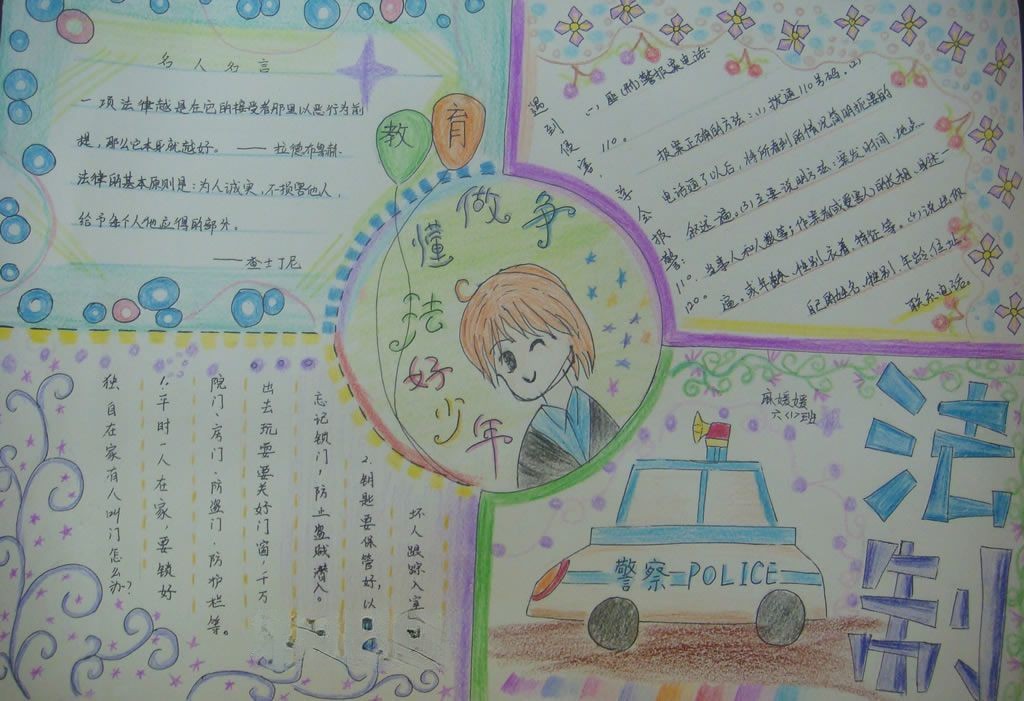 名人名言
一项法律越是在它的接受者那里以恶行为前
提，那么它本身就越好。——拉德布鲁赫
法律的基本原则是：为人诚实，不损害他人，
给予每个人他应得的部分。
——查士丁尼
教育
争做懂法好少年
遇到侵害，学会报警
110。
报案正确的方法：(1)拨通110号码。(2)
电话通了以后，将所看到的情况简明扼要的
叙述一遍。(3)主要说明方法：案发时间、地点
当事人和人数等；
的长相、身
遍。或年龄、性别、衣着、特征等。(4)说出你
自己的姓名、性别、年龄、住址
联系电话。
独自在家有人叫门怎么办？
1.平时一人在家，要锁好
院门、房门、防盗门、防护栏等。
出去玩耍要关好门窗，千万
忘记锁门，防止盗贼潜入。
2.钥匙要保管好，以
坏人跟踪入室
麻媛媛
六〈1〉班
警察—POLICE
法制